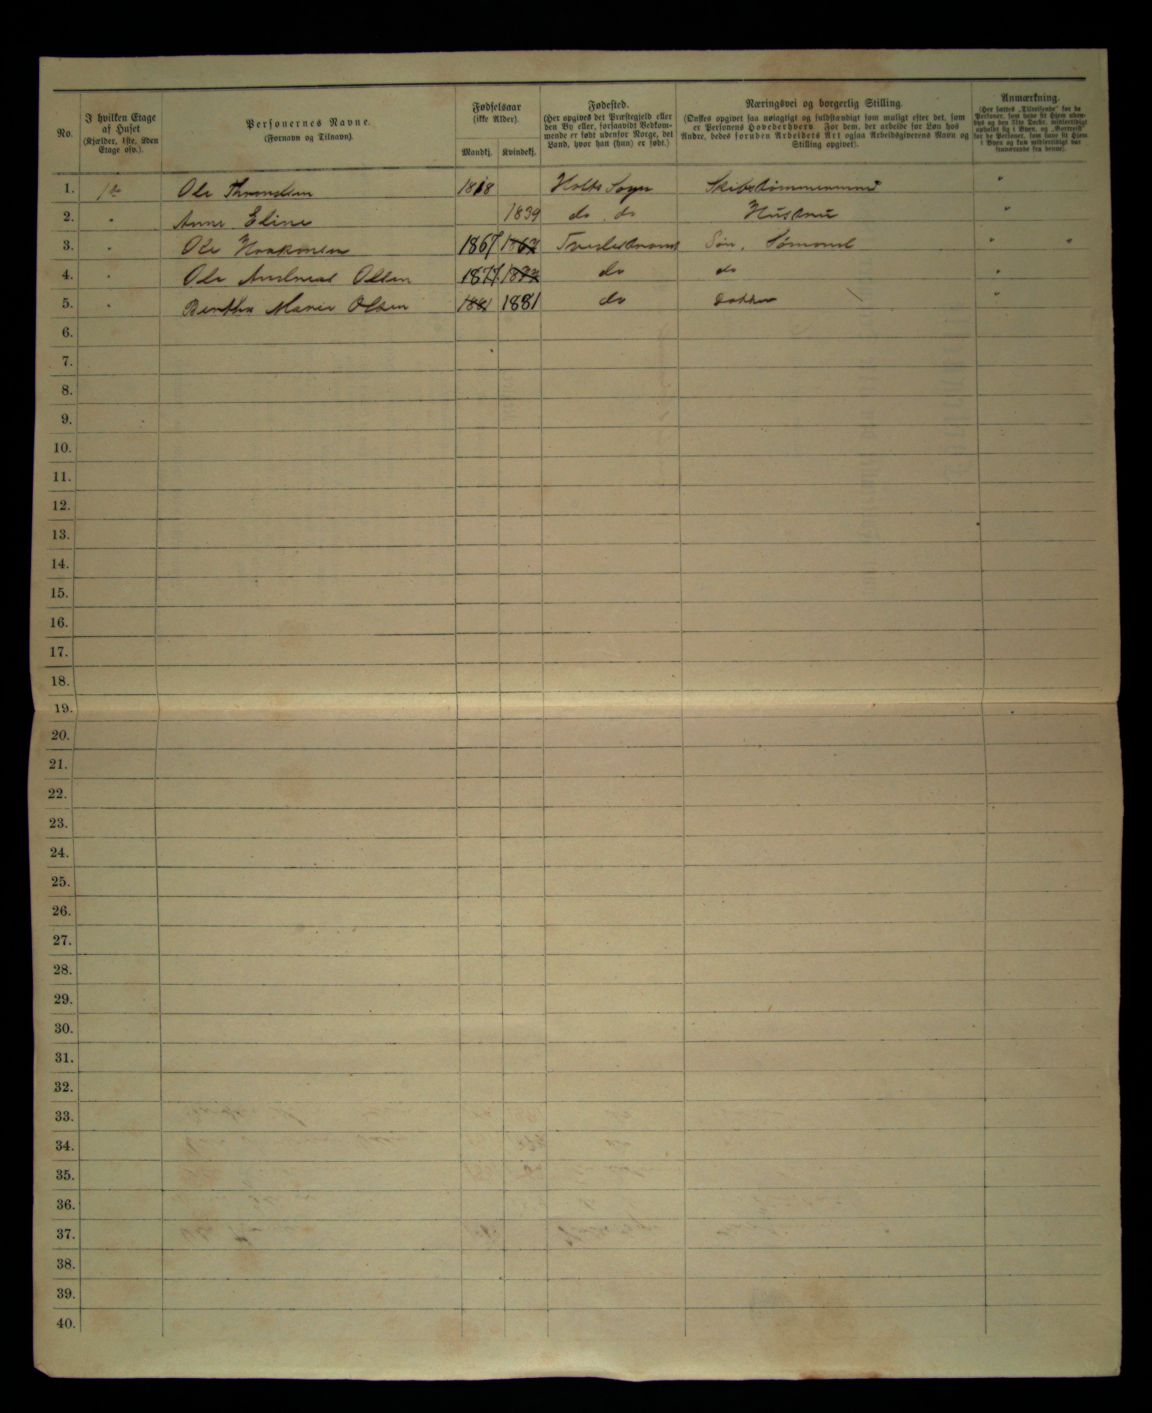 No.
I hvilken Etage
af Huset
(Kjælder, 1ste, 2den
Etage osv.).
Personernes Navne.
(Fornavn og Tilnavn).
Fødselsaar
(ikke Alder).
Mandkj. Kvindekj.
Fødested.
(Her opgives det Præstegjeld eller
den By eller, forsaavidt Vedkom-
mende er født udenfor Norge, det
Land, hvor han (hun) er født.)
Næringsvei og borgerlig Stilling.
(Ønskes opgivet saa nøiagtigt og fuldstændigt som muligt efter det, som
er Personens Hovederhverv. For dem, der arbeide for Løn hos
Andre, bedes foruden Arbeidets Art ogsaa Arbeidsgiverens Navn og
Stilling opgivet).
Anmærkning.
1. 1ste Ole 1818 Holts Sogn Skibstømmermand "
2. " Anne Eline 1839 do do Hustru "
3. " Ole Haakonsen 1867 1867 Tvedestrand Søn, Sømand " "
4. " Ole Andreas Olsen 1877 1877 do do "
5. " Berthe Marie Olsen 1881 1881 do Datter "
6.
7.
8.
9.
10.
11.
12.
13.
14.
15.
16.
17.
18.
19.
20.
21.
22.
23.
24.
25.
26.
27.
28.
29.
30.
31.
32.
33.
34.
35.
36.
37.
38.
39.
40.